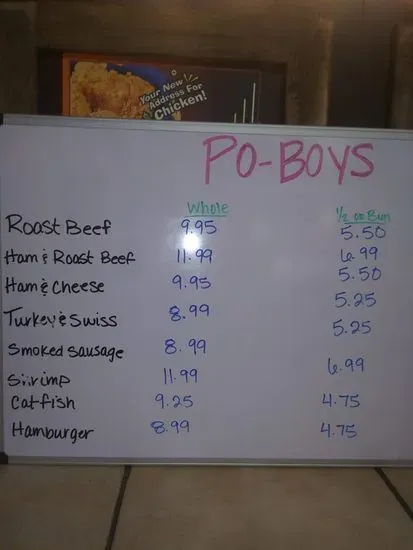 Your New
Address For
Chicken!
PO-BOYS
Whole 1/2 or Bun
Roast Beef 9.95 5.50
Ham & Roast Beef 11.99 6.99
Ham & Cheese 9.95 5.50
Turkey & Swiss 8.99 5.25
Smoked Sausage 8.99 5.25
Shrimp 11.99 6.99
Catfish 9.25 4.75
Hamburger 8.99 4.75